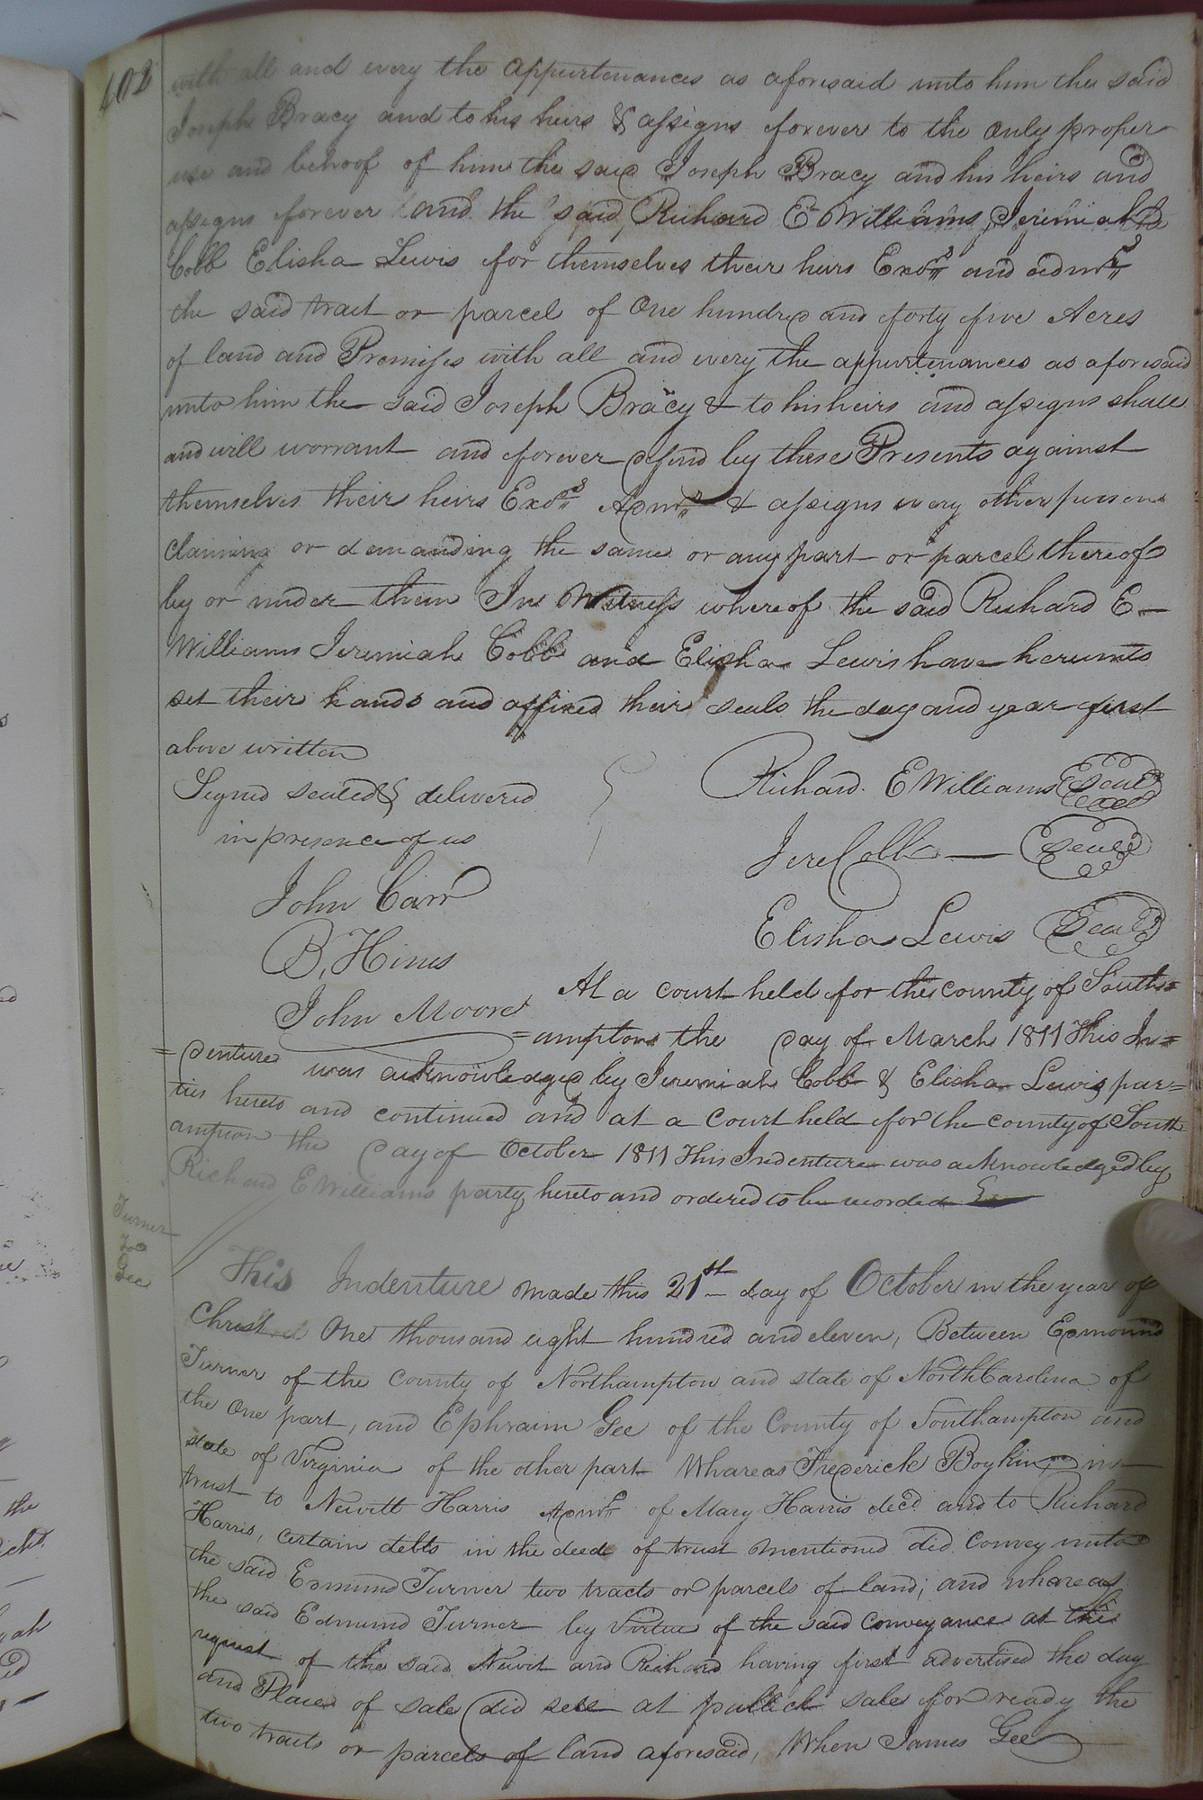 402
with all and every the appurtenances as aforesaid unto him the said
Joseph Bracy and to his heirs & assigns forever to the only proper
use and behoof of him the said Joseph Bracy and his heirs and
assigns forever and the said Richard E Williams Jeremiah
Cobb Elisha Lewis for themselves their heirs Exors and admrs
the said tract or parcel of One hundred and forty five Acres
of land and Premises with all and every the appurtenances as aforesaid
unto him the said Joseph Bracy & to his heirs and assigns shall
and will worrant and forever defend by these Presents against
themselves their heirs Exors Admrs & assigns every other persons
claiming or demanding the same or any part or parcel thereof
by or under them In Witness whereof the said Richard E
Williams Jeremiah Cobb and Elisha Lewis have hereunto
set their hands and affixed their seals the day and year first
above written
Signed sealed & delivered
in presence of us
Richard E Williams Seal
John Carr
Jere Cobb Seal
B, Hines
Elisha Lewis Seal
John Moore
At a court held for the county of South=
=ampton the day of March 1811 This In=
=denture was acknowledged by Jeremiah Cobb & Elisha Lewis par=
ties hereto and continued and at a court held for the county of South
ampton the day of October 1811 This Indenture was acknowledged by
Richard E Williams party hereto and ordered to be recorded
Turner
to
Gee
This Indenture made this 21st day of October in the year of
Christ One thousand eight hundred and eleven, Between Edmound
Turner of the County of Northampton and state of North Carolina of
the One part, and Ephraim Gee of the County of Southampton and
state of Virginia of the other part Whareas Frederick Boykin in
trust to Newitt Harris Admr of Mary Harris decd and to Richard
Harris, certain debts in the deed of trust mentioned did convey unto
the said Edmund Turner two tracts or parcels of land; and whareas
the said Edmund Turner by Virtue of the said conveyance at the
request of the said Newit and Richard having first advertised the day
and Place of sale did sell at publick sale for ready the
two tracts or parcels of land aforesaid, When James Gee